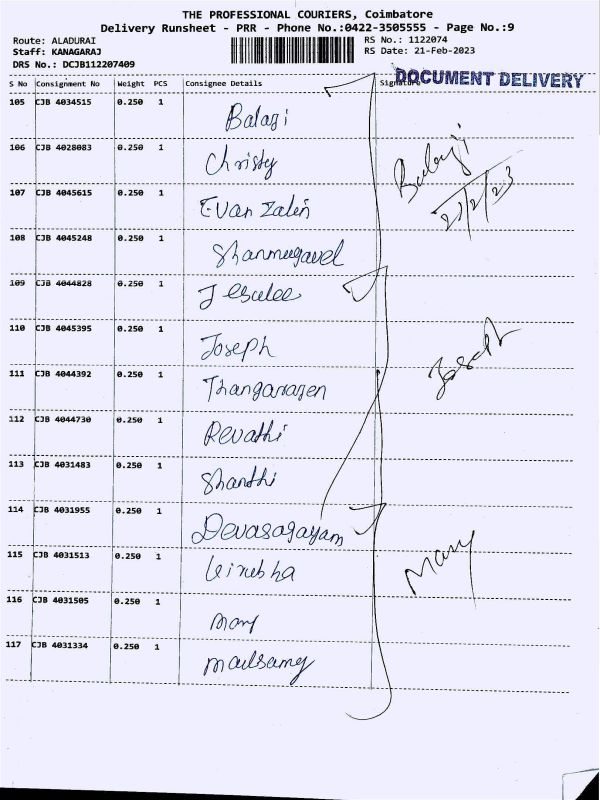 THE PROFESSIONAL COURIERS, Coimbatore
Delivery Runsheet - PRR - Phone No.:0422-3505555 - Page No.:9
Route: ALADURAI RS No.: 1122074
Staff: KANAGARAJ RS Date: 21-Feb-2023
DRS No.: DCJB112207409
DOCUMENT DELIVERY
S No Consignment No Weight PCS Consignee Details Signature
105 CJB 4034515 0.250 1 Balagi
106 CJB 4028083 0.250 1 Christy
107 CJB 4045615 0.250 1 Evan Zalin
Balaji
21/2/23
108 CJB 4045248 0.250 1 Shanmugavel
109 CJB 4044828 0.250 1
110 CJB 4045395 0.250 1 Joseph
Joseph
111 CJB 4044392 0.250 1
112 CJB 4044730 0.250 1 Revathi
113 CJB 4031483 0.250 1 Shanthi
114 CJB 4031955 0.250 1 Devasagayam
115 CJB 4031513 0.250 1
Mary
116 CJB 4031505 0.250 1 Mary
117 CJB 4031334 0.250 1 Mailsamy